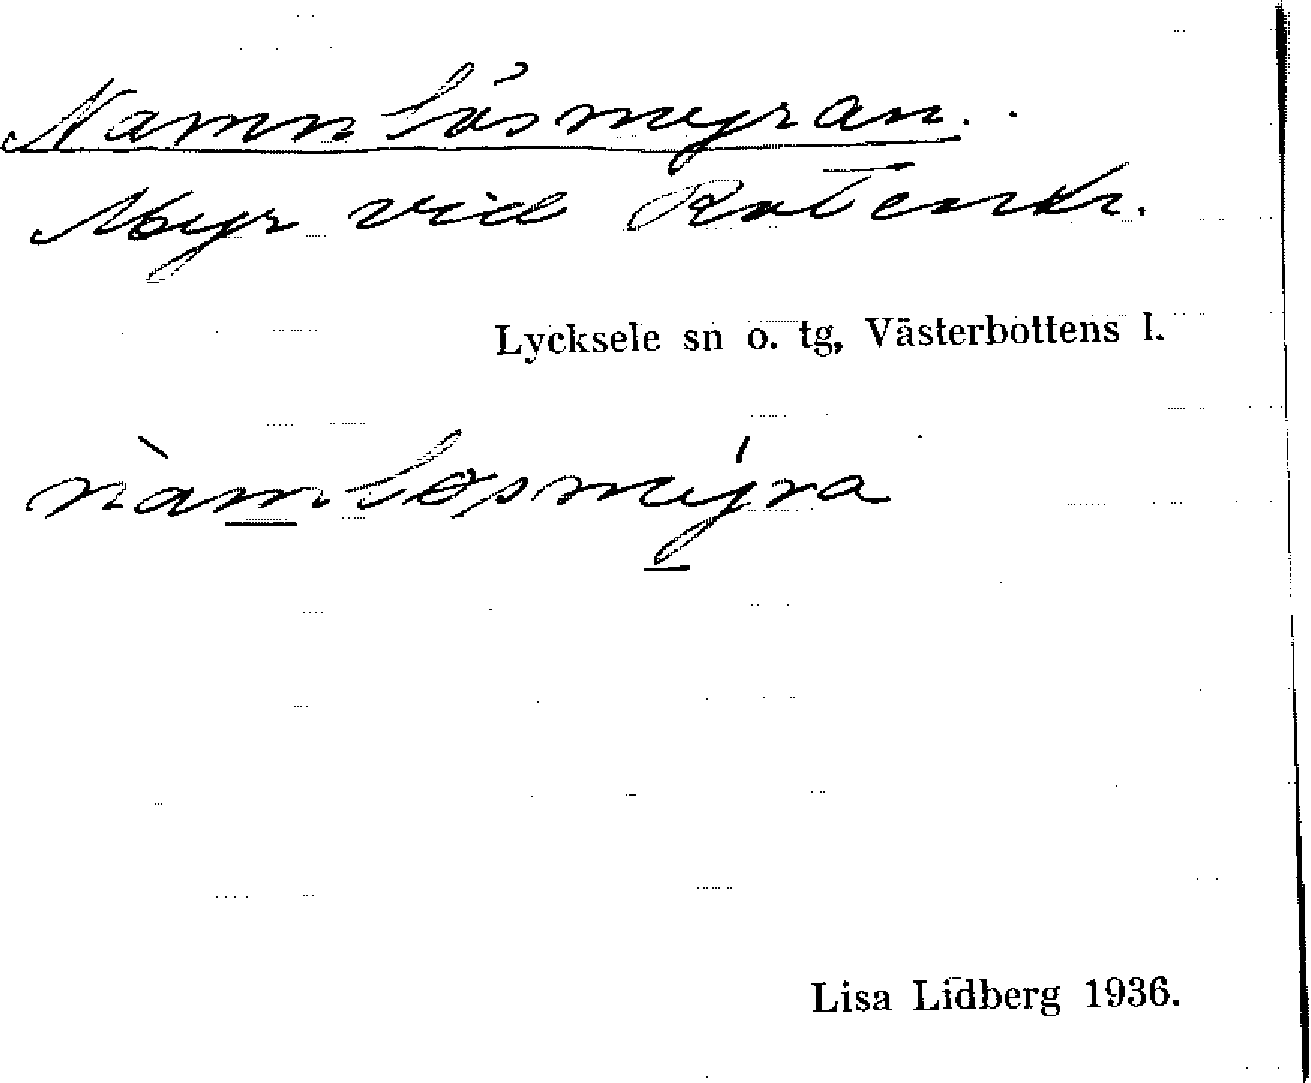 Namnlösmyran.
Myr vid
Lycksele sn o. tg, Västerbottens l.
nàmløsmýra
Lisa Lidberg 1936.